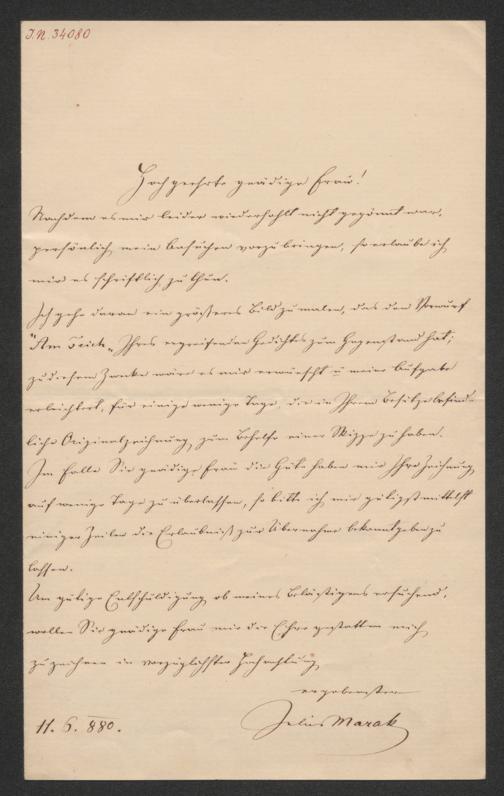 I.N. 34080
Hochgeehrte gnädige Frau!
Nachdem es mir leider wiederhohlt nicht gegönnt war,
persönlich mein Ansuchen vorzubringen, so erlaube ich
mir es schriftlich zu thun.
Ich gehe daran ein größeres Bild zu malen, das den Vorwurf
"Am Teich" Ihres ergreifenden Gedichtes zum Gegenstand hat;
zu diesem Zwecke wäre es mir erwünscht u meine Aufgabe
erleichtert, für einige wenige Tage, die in Ihrem Besitze befind-
liche Originalzeichnung, zum Behelfe einer Skizze zu haben.
Im Falle Sie gnädige Frau die Güte haben mir Ihre Zeichnung
auf wenige Tage zu überlassen, so bitte ich mir gütigst mittelst
einiger Zeilen die Erlaubniß zur Übernahme bekanntgeben zu
lassen.
Um gütige Entschuldigung ob meines Belästigens ersuchend,
wollen Sie gnädige Frau mir die Ehre gestatten mich
zu zeichnen in vorzüglichster Hochachtung
ergebensten
Julius Marak
11. 6. 880.